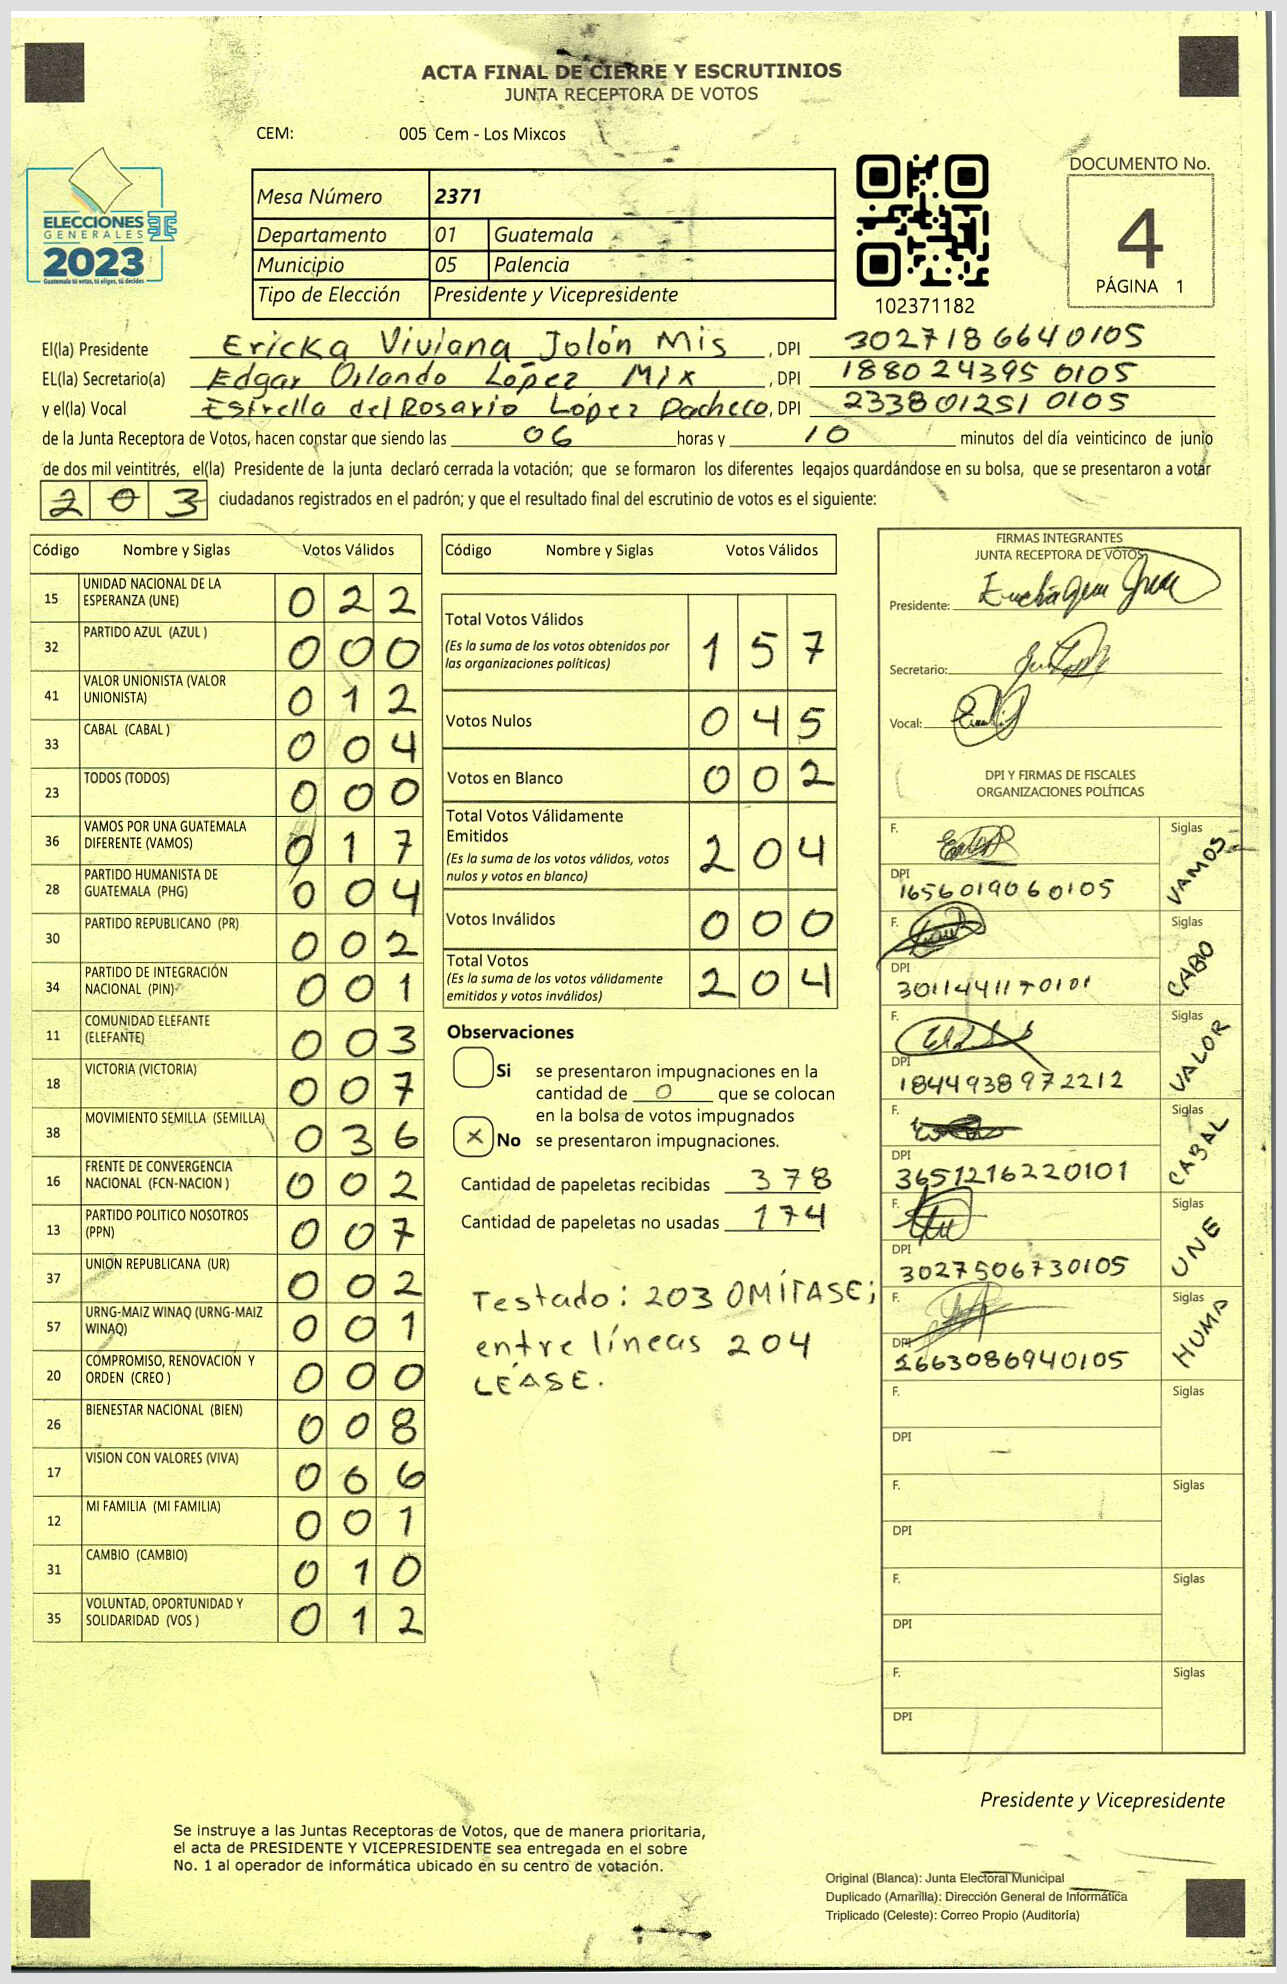 ACTA FINAL DE CIERRE Y ESCRUTINIOS
JUNTA RECEPTORA DE VOTOS
CEM: 005 Cem - Los Mixcos
ELECCIONES
GENERALES
2023
Guatemala tú votas, tú eliges, tú decides
Mesa Número 2371
Departamento 01 Guatemala
Municipio 05 Palencia
Tipo de Elección Presidente y Vicepresidente
102371182
DOCUMENTO No.
4
PÁGINA 1
El(la) Presidente Ericka Viviana Jolón Mis, DPI 3027186640105
EL(la) Secretario(a) Edgar Orlando López Mix, DPI 1880243950105
y el(la) Vocal Estrella del Rosario López Pacheco, DPI 2338012510105
de la Junta Receptora de Votos, hacen constar que siendo las 06 horas y 10 minutos del día veinticinco de junio
de dos mil veintitrés, el(la) Presidente de la junta declaró cerrada la votación; que se formaron los diferentes legajos quardándose en su bolsa, que se presentaron a votar
203 ciudadanos registrados en el padrón; y que el resultado final del escrutinio de votos es el siguiente:
Código Nombre y Siglas Votos Válidos
15 UNIDAD NACIONAL DE LA ESPERANZA (UNE) 022
32 PARTIDO AZUL (AZUL ) 000
41 VALOR UNIONISTA (VALOR UNIONISTA) 012
33 CABAL (CABAL ) 004
23 TODOS (TODOS) 000
36 VAMOS POR UNA GUATEMALA DIFERENTE (VAMOS) 017
28 PARTIDO HUMANISTA DE GUATEMALA (PHG) 004
30 PARTIDO REPUBLICANO (PR) 002
34 PARTIDO DE INTEGRACIÓN NACIONAL (PIN) 001
11 COMUNIDAD ELEFANTE (ELEFANTE) 003
18 VICTORIA (VICTORIA) 007
38 MOVIMIENTO SEMILLA (SEMILLA) 036
16 FRENTE DE CONVERGENCIA NACIONAL (FCN-NACION ) 002
13 PARTIDO POLITICO NOSOTROS (PPN) 007
37 UNION REPUBLICANA (UR) 002
57 URNG-MAIZ WINAQ (URNG-MAIZ WINAQ) 001
20 COMPROMISO, RENOVACION Y ORDEN (CREO ) 000
26 BIENESTAR NACIONAL (BIEN) 008
17 VISION CON VALORES (VIVA) 066
12 MI FAMILIA (MI FAMILIA) 001
31 CAMBIO (CAMBIO) 010
35 VOLUNTAD, OPORTUNIDAD Y SOLIDARIDAD (VOS ) 012
Código Nombre y Siglas Votos Válidos
Total Votos Válidos 157
(Es la suma de los votos obtenidos por
las organizaciones políticas)
Votos Nulos 045
Votos en Blanco 002
Total Votos Válidamente
Emitidos 204
(Es la suma de los votos válidos, votos
nulos y votos en blanco)
Votos Inválidos 000
Total Votos 204
(Es la suma de los votos válidamente
emitidos y votos inválidos)
Observaciones
Si se presentaron impugnaciones en la
cantidad de 0 que se colocan
en la bolsa de votos impugnados
X No se presentaron impugnaciones.
Cantidad de papeletas recibidas 378
Cantidad de papeletas no usadas 174
Testado: 203 OMÍTASE;
entre líneas 204
LÉASE.
FIRMAS INTEGRANTES
JUNTA RECEPTORA DE VOTOS
Presidente:
Secretario:
Vocal:
DPI Y FIRMAS DE FISCALES
ORGANIZACIONES POLÍTICAS
F. Siglas VAMOS
DPI 1656019060105
F. Siglas CABIO
DPI 3011441170101
F. Siglas VALOR
DPI 1844938972212
F. Siglas CABAL
DPI 3651216220101
F. Siglas UNE
DPI 3027506730105
F. Siglas HUMA
DPI 1663086940105
F. Siglas
DPI
F. Siglas
DPI
F. Siglas
DPI
F. Siglas
DPI
Presidente y Vicepresidente
Se instruye a las Juntas Receptoras de Votos, que de manera prioritaria,
el acta de PRESIDENTE Y VICEPRESIDENTE sea entregada en el sobre
No. 1 al operador de informática ubicado en su centro de votación.
Original (Blanca): Junta Electoral Municipal
Duplicado (Amarilla): Dirección General de Informática
Triplicado (Celeste): Correo Propio (Auditoría)